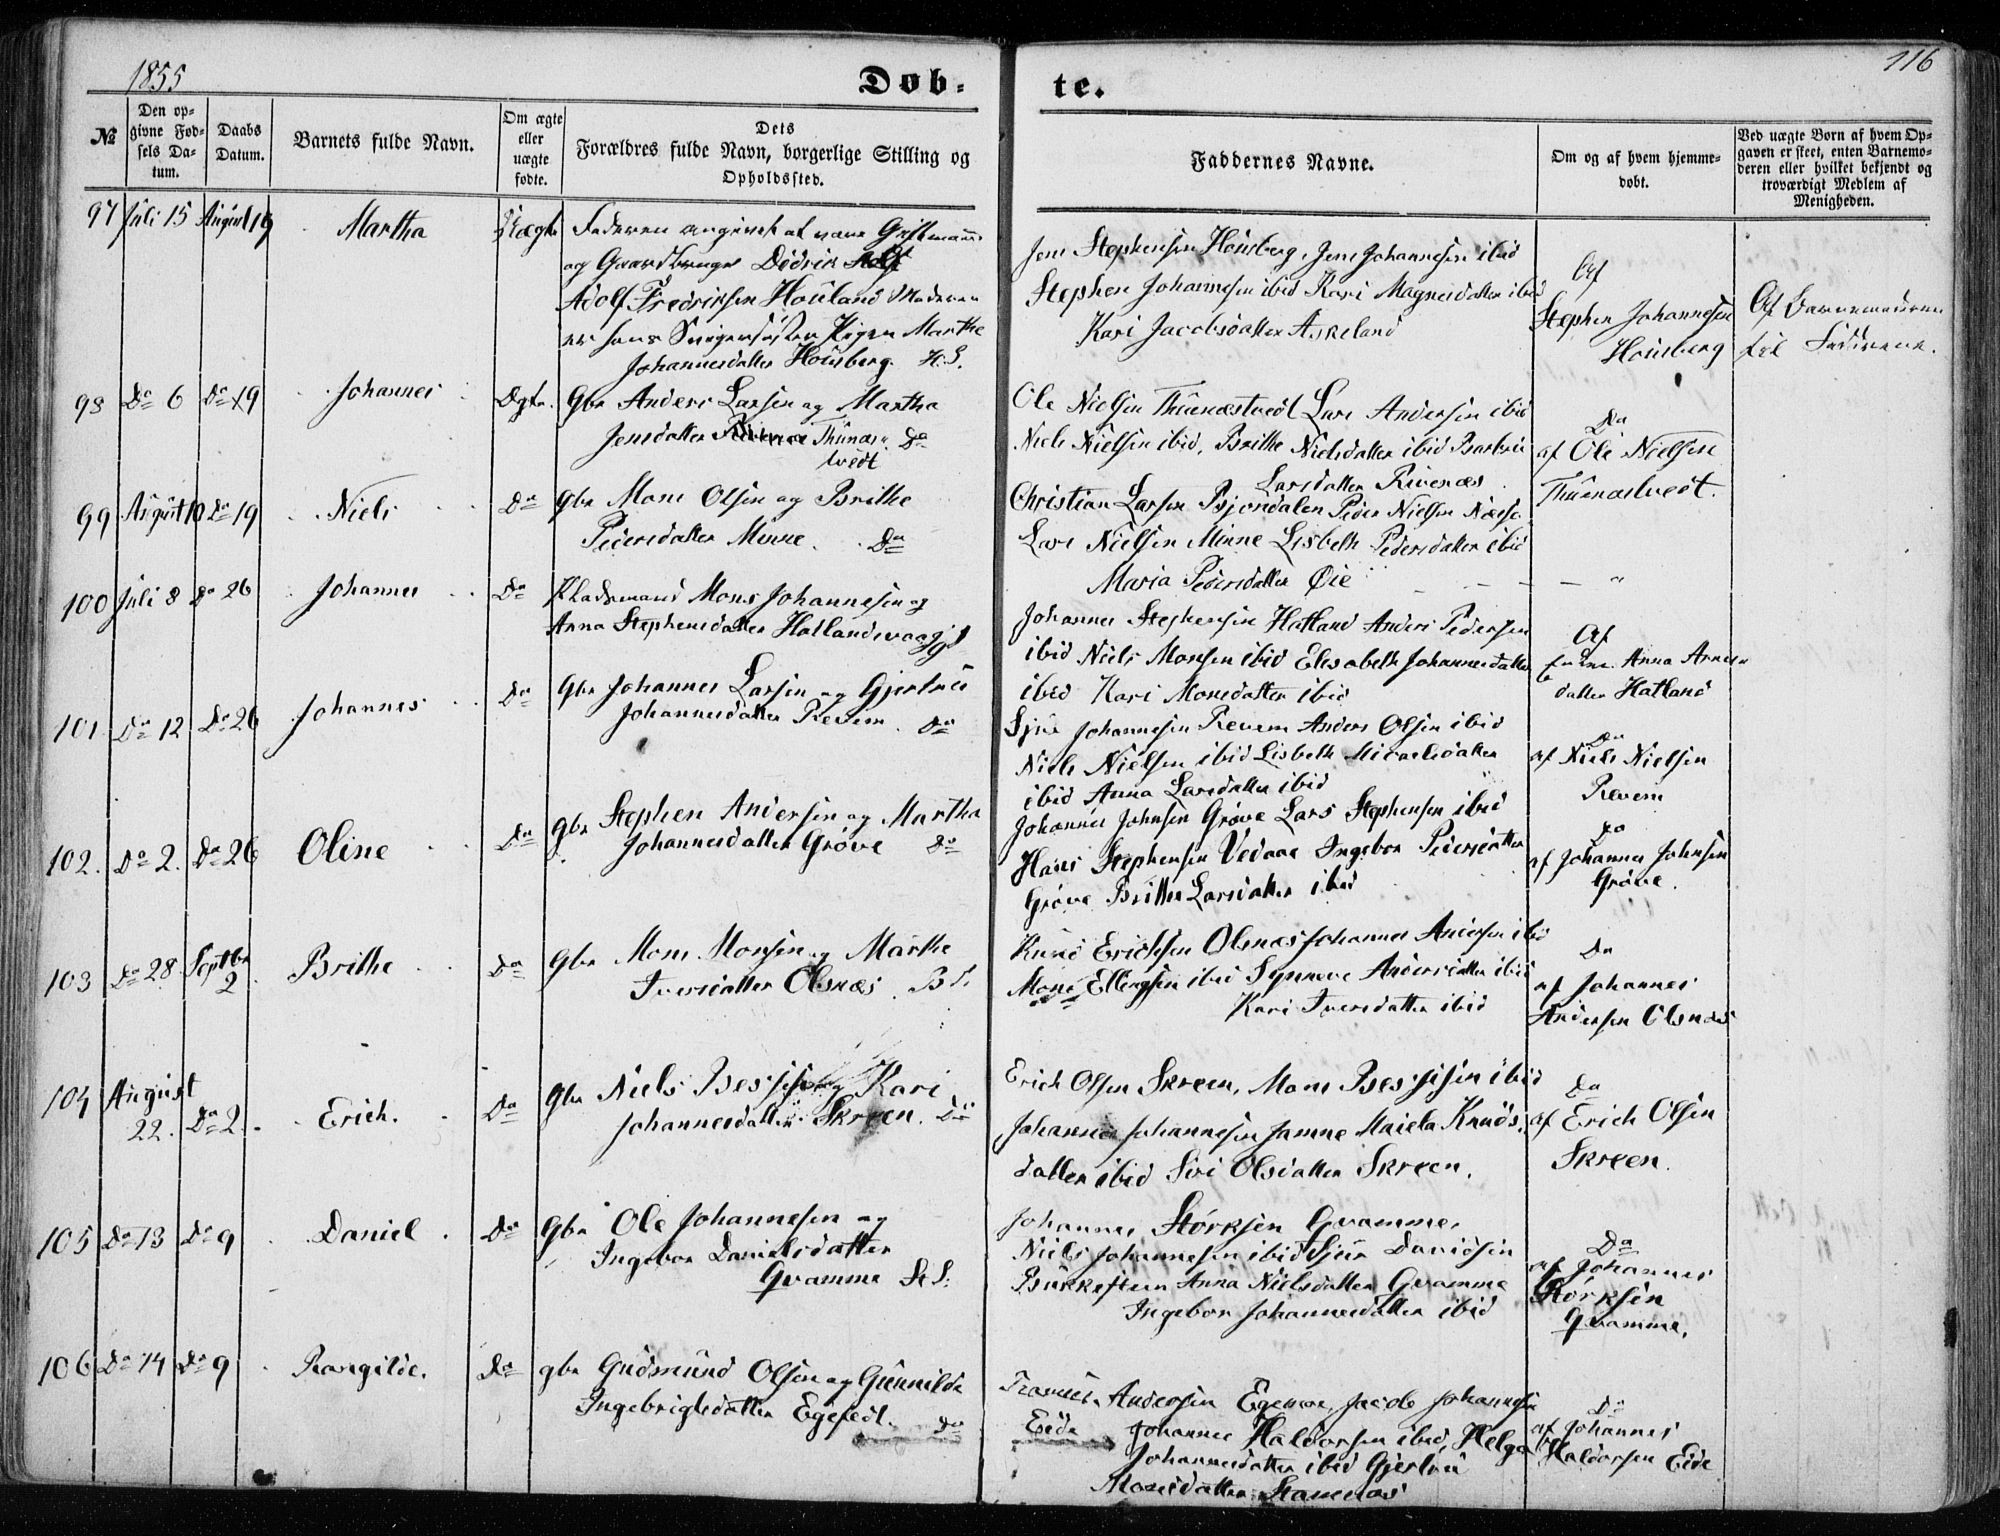 1855
Døb-
te.
116
№
Den op-
givne Fød-
sels Da-
tum.
Daabs
Datum.
Barnets fulde Navn.
Om ægte
eller
uægte
fødte.
Dets
Forældres fulde Navn, borgerlige Stilling og
Opholdssted.
Faddernes Navne.
Om og af hvem hjemme-
døbt.
Ved uægte Børn af hvem Op-
gaven er skeet, enten Barnemo-
deren eller hvilket bekjendt og
troværdigt Medlem af
Menigheden.
97 Juli 15 August 19 Martha Uægte
Faderen angivet at være Giftmann
og Gaardbruger Didrik
Adolf Fredriksen Houland Moderen
er hans Svigersøster Pigen Marthe
Johannesdatter Housberg. H.S.
Jens Stephensen Housberg, Jens Johannesen ibid
Stephen Johannesen ibid Kari Magnesdatter ibid
Kari Jacobsdatter Askeland
Af
Stephen Johannesen
Housberg
Af Barnemoderen
til Fadderne.
98 Do 6 Do 19 Johannes Ægte.
Gbr Anders Larsen og Martha
Jensdatter Thunæs-
tvedt Do
Ole Nielsen Thunæstvedt Lars Andersen ibid
Niels Nielsen ibid, Brithe Nielsdatter ibid Barbru
Larsdatter Rivenæs.
Do
af Ole Nielsen
Thunæstvedt.
99 August 10 Do 19 Niels Do
Gbr Mons Olsen og Brithe
Pedersdatter Minne. Do
Christian Larsen Bjordalen Peder Nielsen
Lars Nielsen Minne Lisbeth Pedersdatter ibid
Maria Pedersdatter Øie
100 Juli 8 Do 26 Johannes Do
Pladsmand Mons Johannesen og
Anna Stephensdatter Hatlandsvaag
Johannes Stephensen Hatland Anders Pedersen
ibid Niels Monsen ibid Elisabeth Johannesdatter
ibid Kari Monsdatter ibid
Af
Anna Arnes-
datter Hatland
101 Do 12 Do 26 Johannes Do
Gbr Johannes Larsen og Gjertrud
Johannesdatter Revem. Do
Sjur Johannesen Revem Anders Olsen ibid
Niels Nielsen ibid Lisbeth Micaelsdatter
ibid Anna Larsdatter ibid
Do
af Niels Nielsen
Revem
102. Do 2. Do 26 Oline Do
Gbr Stephen Andersen og Martha
Johannesdatter Grøve Do
Johannes Johnsen Grøve Lars Stephensen ibid
Hans Stephensen Vedaae Ingebor Pedersdatter
Grøve Brithe Larsdatter ibid
Do
af Johannes Johnsen
Grøve.
103 Do 28 Septbr
2 Brithe Do
Gbr Mons Monsen og Marthe
Iversdatter Olsnæs. B.S.
Knud Erichsen Olsnæs Johannes Andersen ibid
Mons Ellingsen ibid Synneve Andersdatter ibid
Kari Iversdatter ibid
Do
af Johannes
Andersen Olsnæs
104 August
22. Do 2. Erich. Do
Gbr Niels Bessesen og Kari
Johannesdatter Skreen. Do
Erich Olsen Skreen, Mons Bessesen ibid
Johannes Johannesen Jamne Maiela Knuds-
datter ibid Siri Olsdatter Skreen.
Do
af Erich Olsen
Skreen.
105 Do 13 Do 9 Daniel Do
Gbr Ole Johannesen og
Ingebor Danielsdatter
Qvamme St S.
Johannes Størksen Qvamme,
Niels Johannesen ibid Sjur Davidsen
Bukkesteen Anna Nielsdatter Qvamme
Ingebor Johannesdatter ibid
Do
af Johannes
Størksen
Qvamme.
106 Do 14 Do 9 Rangilde. Do
gbr Gudmund Olsen og Gunnilda
Ingebrigtsdatter Egesedt. Do
Andersen Egenæs, Jacob Johannesen
Eide Johannes Haldorsen ibid, Helga
Johannesdatter ibid Gjertru
Monsdatter Stamnæs
Do
af Johannes
Haldorsen Eide